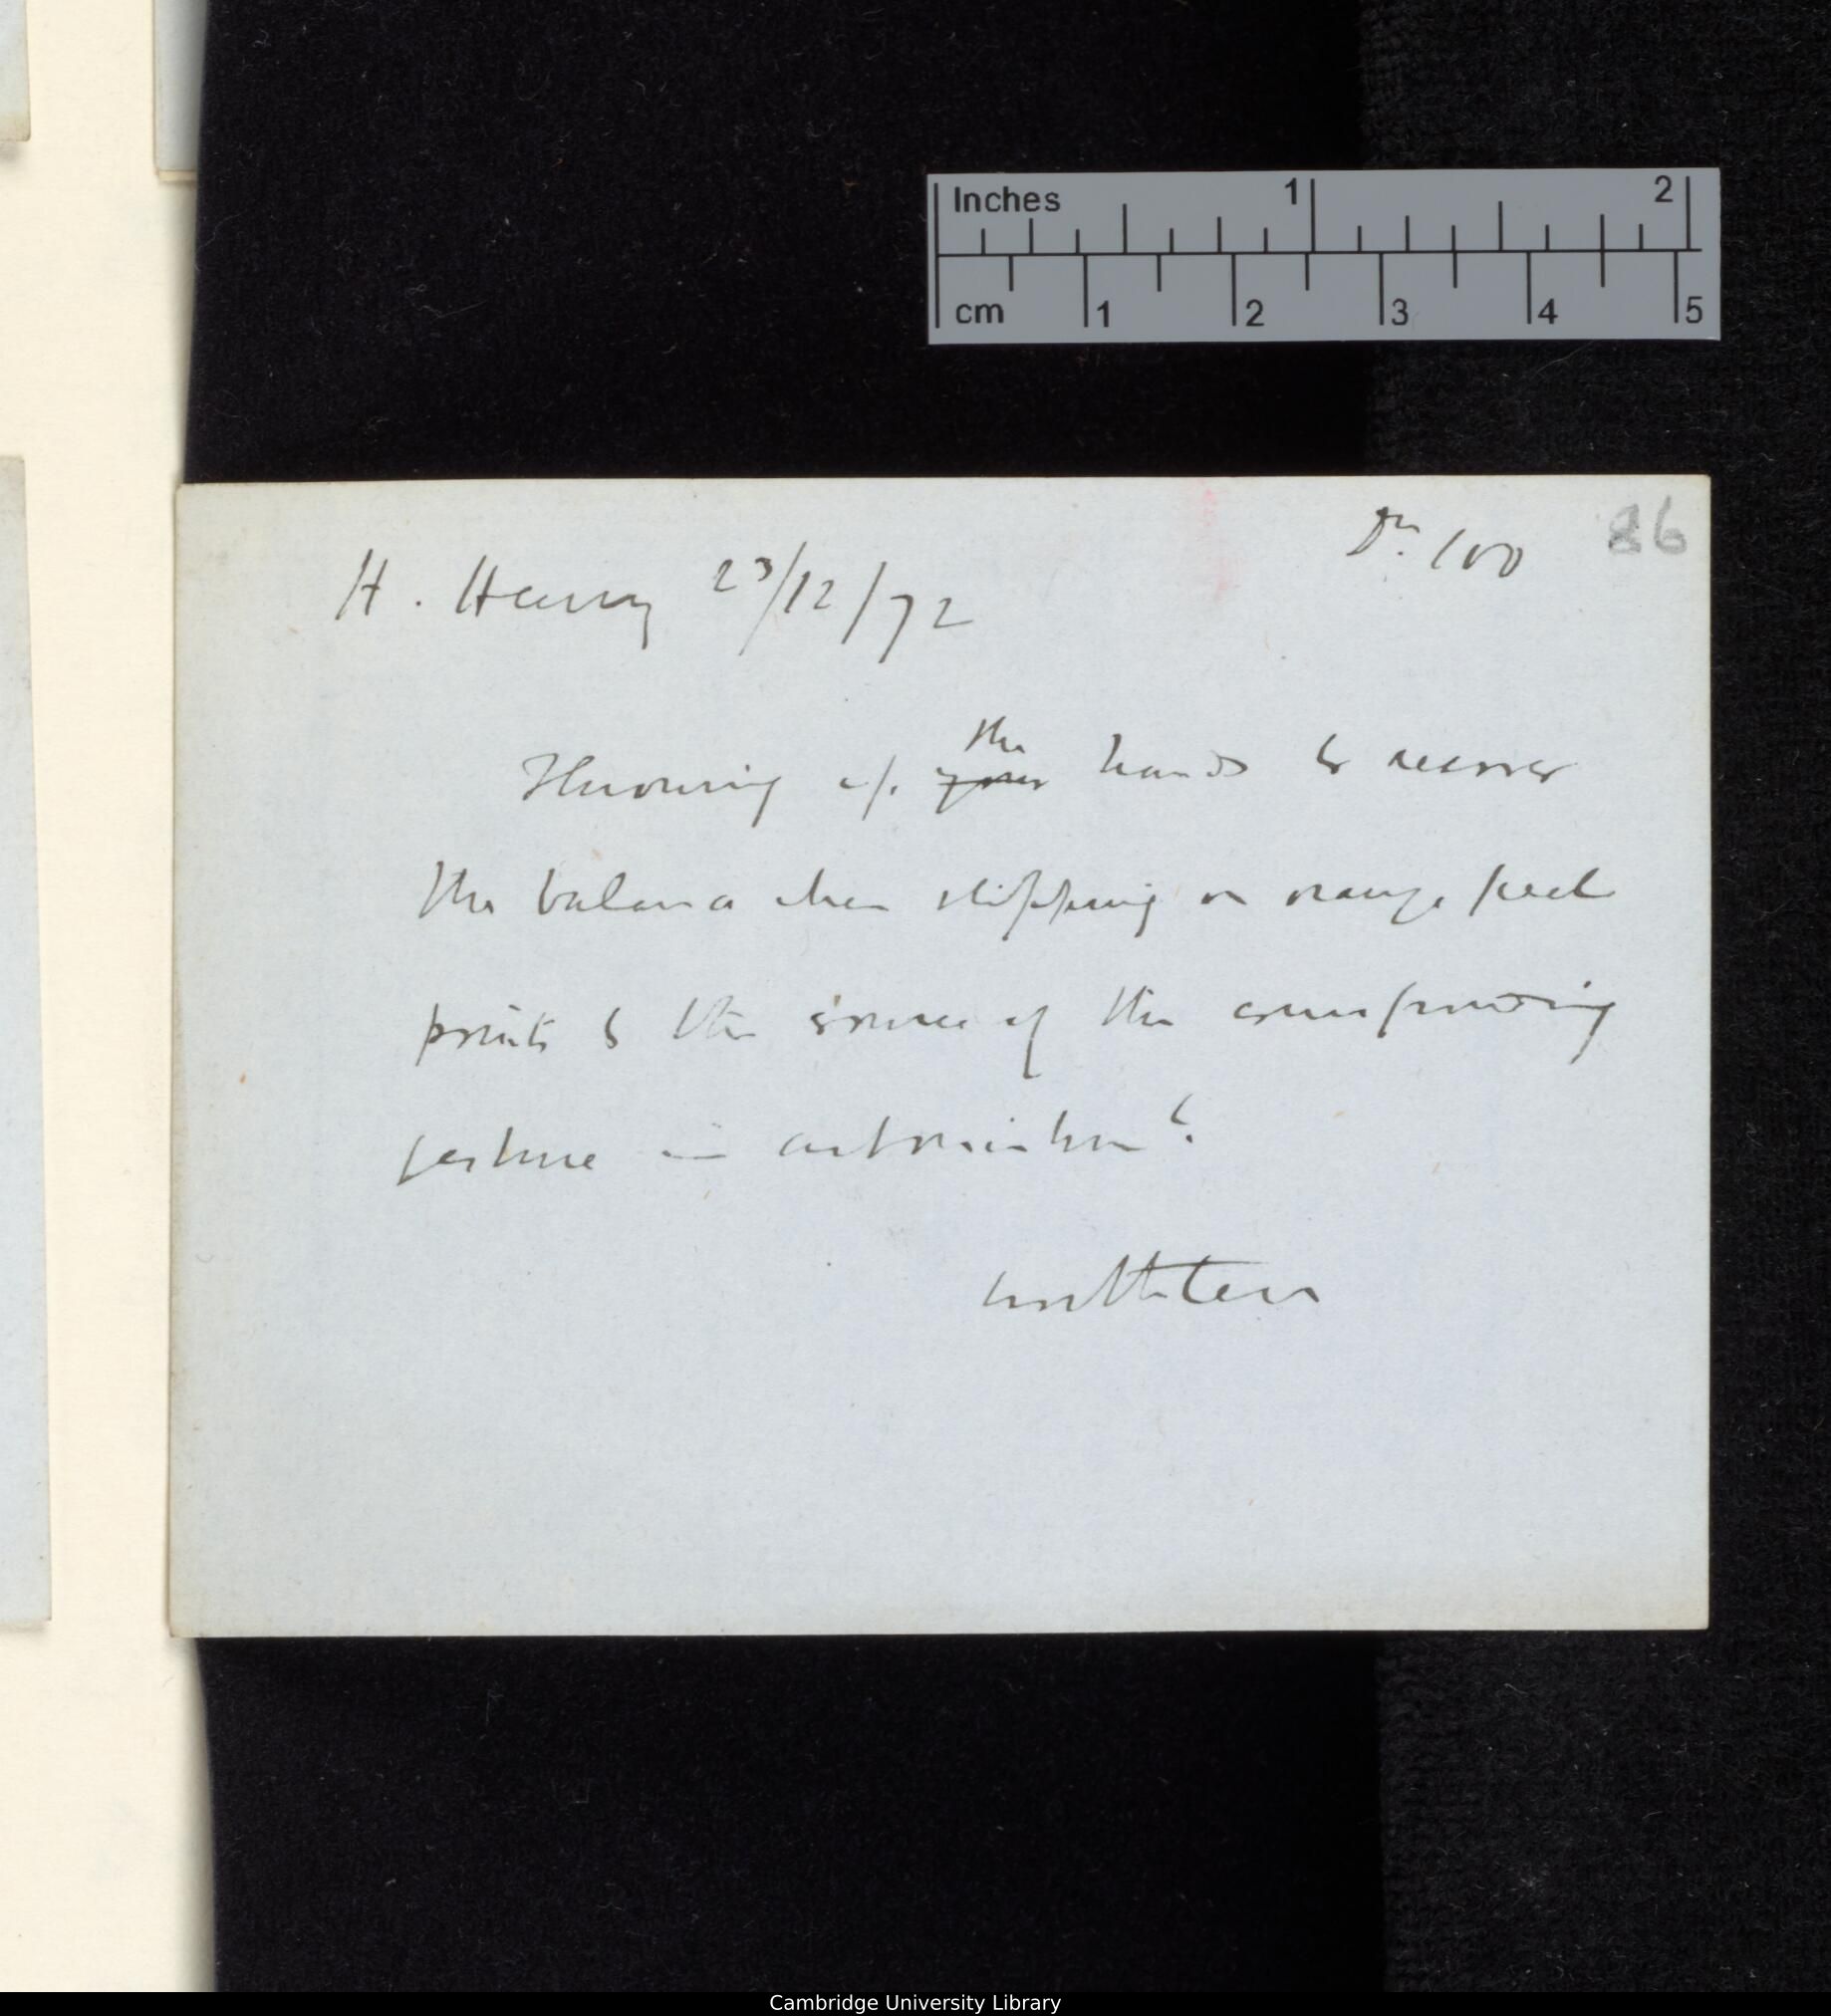 Inches 1 2
cm 1 2 3 4 5
86
H. Henry 23/12/72
the
Throwing up your hands to recover
the balance when slipping on orange peel
points to the source of the corresponding
gesture in astonishmt.
Cambridge University Library